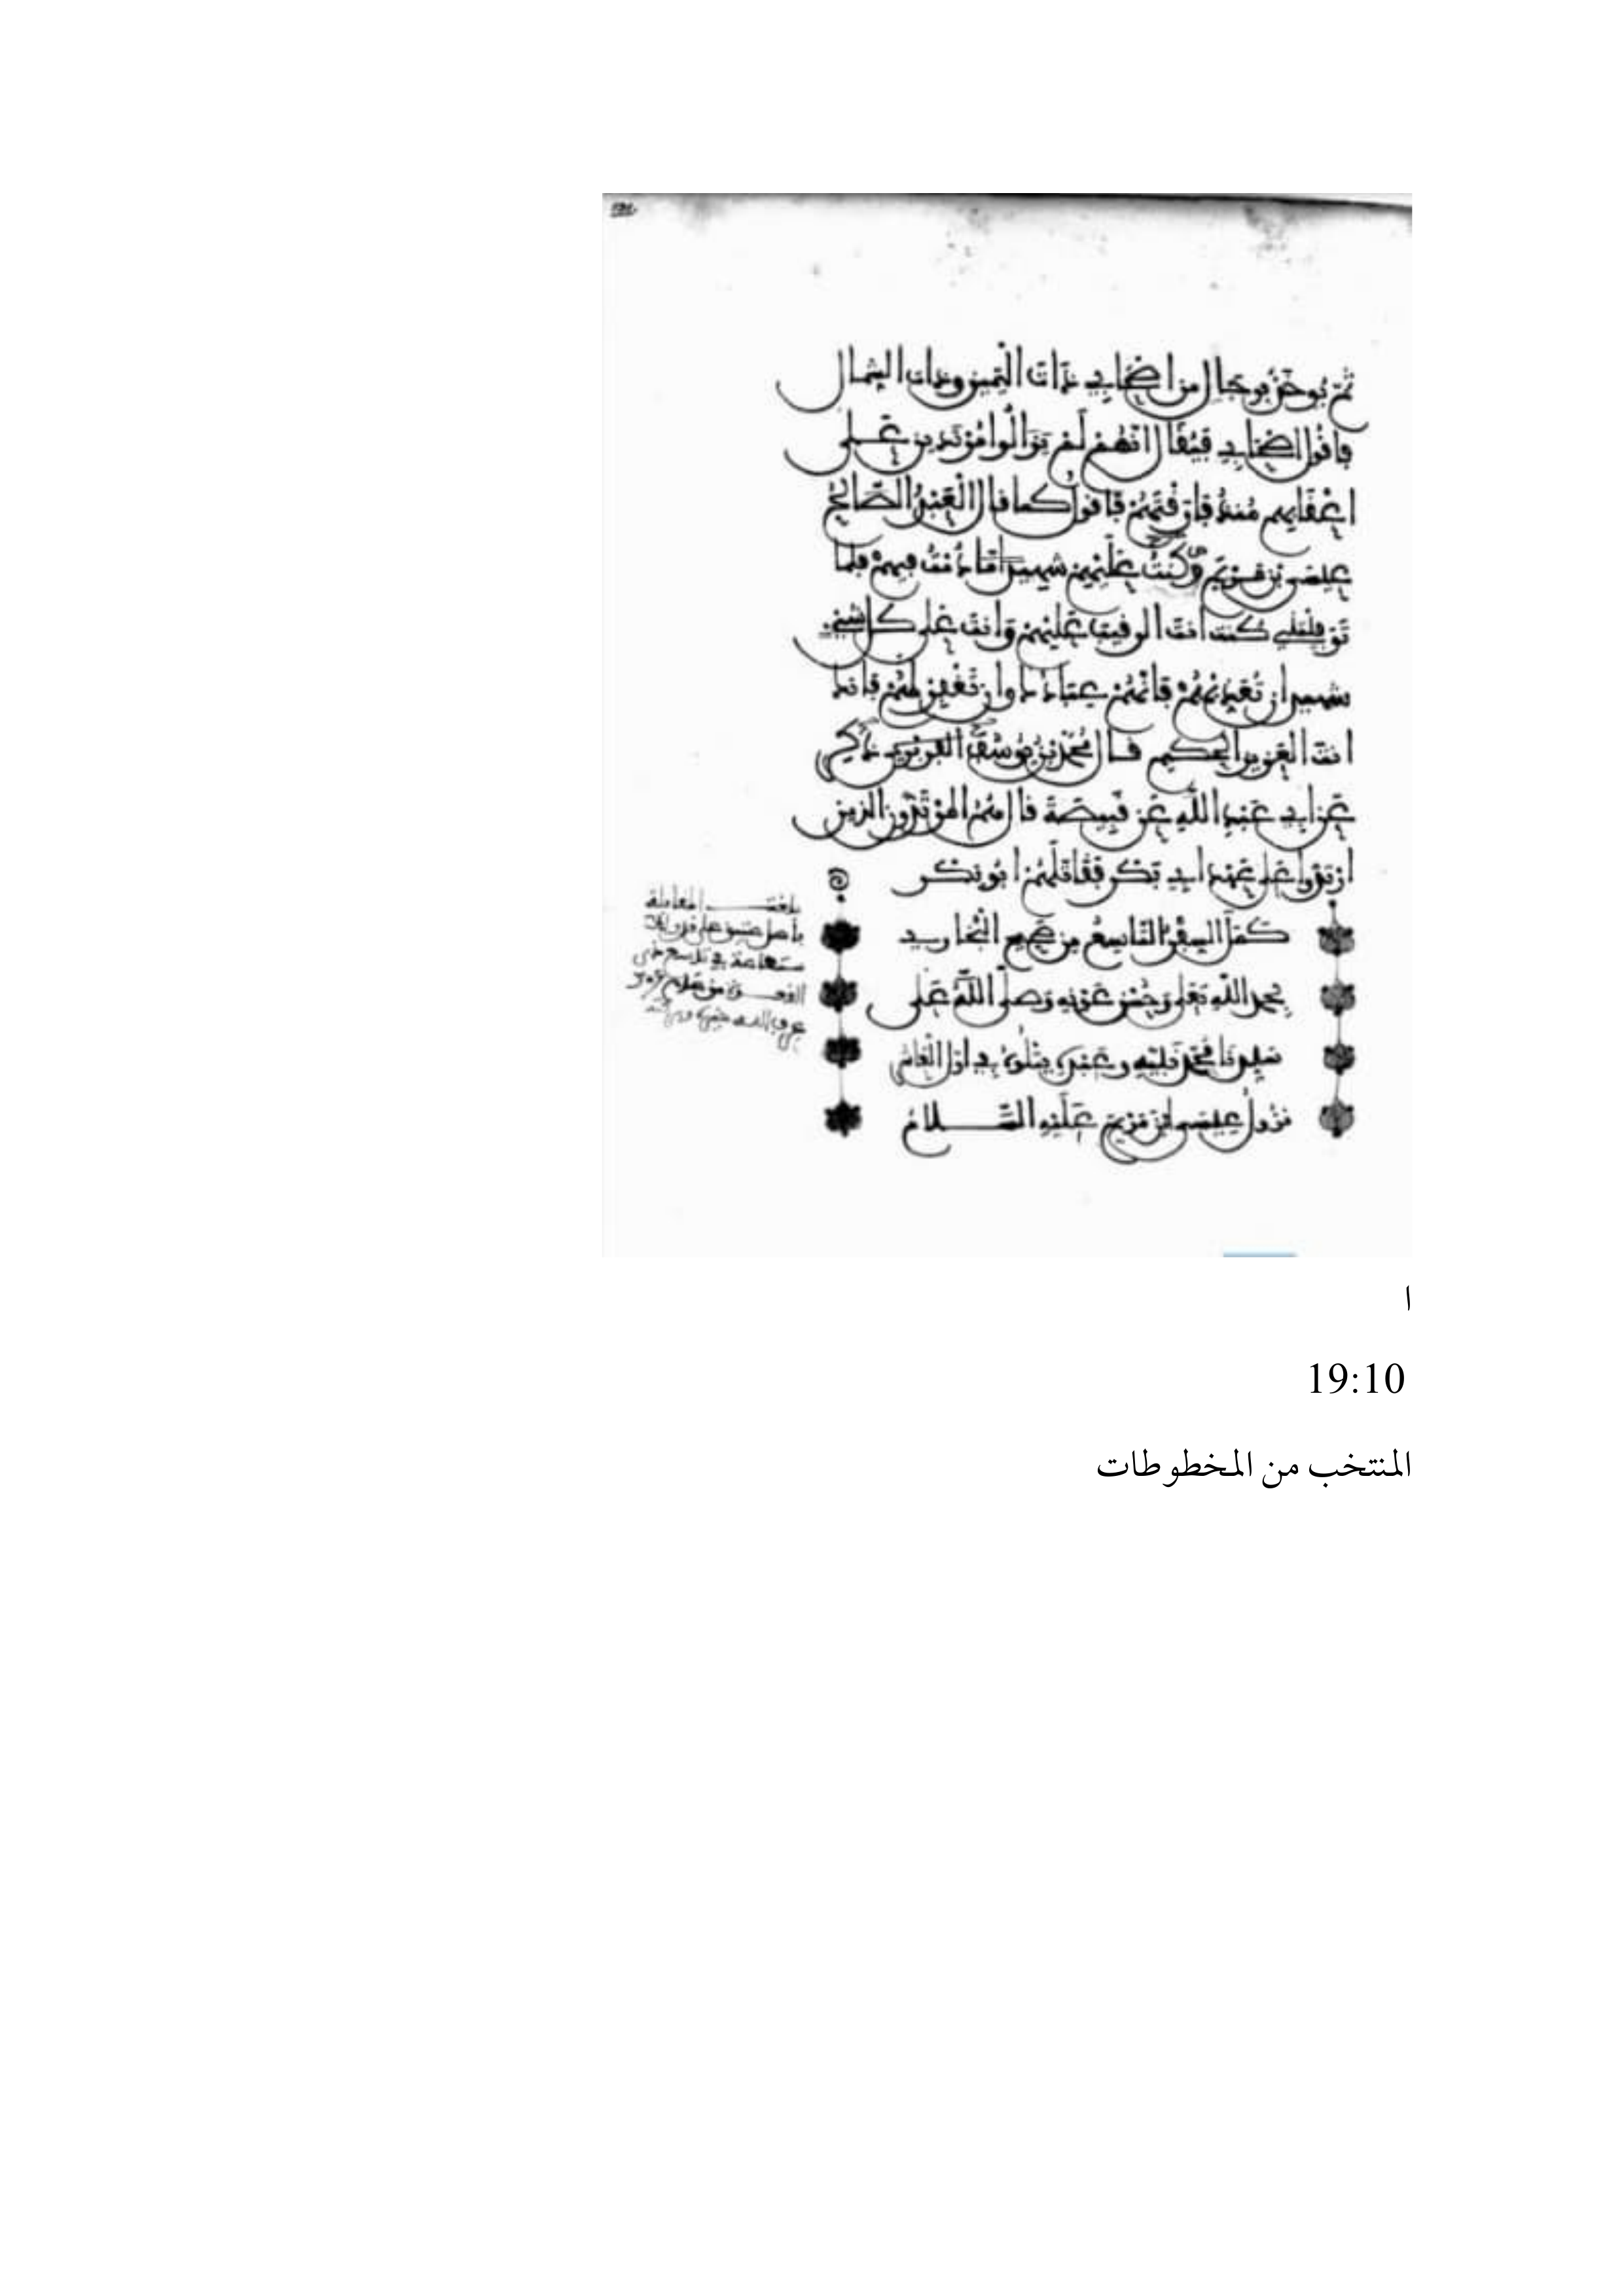 ثُمَّ يُوخَذُ بِرِجَالٍ مِنْ أَصْحَابِي ذَاتَ الْيَمِينِ وَذَاتَ الشِّمَالِ
فَأَقُولُ أَصْحَابِي فَيُقَالُ إِنَّهُمْ لَمْ يَزَالُوا مُرْتَدِّينَ عَلَى
أَعْقَابِهِمْ مُنْذُ فَارَقْتَهُمْ فَأَقُولُ كَمَا قَالَ الْعَبْدُ الصَّالِحُ
عِيسَى بْنُ مَرْيَمَ وَكُنْتُ عَلَيْهِمْ شَهِيدًا مَا دُمْتُ فِيهِمْ فَلَمَّا
تَوَفَّيْتَنِي كُنْتَ أَنْتَ الرَّقِيبَ عَلَيْهِمْ وَأَنْتَ عَلَى كُلِّ شَيْءٍ
شَهِيدٌ إِنْ تُعَذِّبْهُمْ فَإِنَّهُمْ عِبَادُكَ وَإِنْ تَغْفِرْ لَهُمْ فَإِنَّكَ
أَنْتَ الْعَزِيزُ الْحَكِيمُ قَالَ مُحَمَّدُ بْنُ يُوسُفَ الْفَرَبْرِيُّ ذُكِرَ
عَنْ أَبِي عَبْدِ اللَّهِ عَنْ قَبِيصَةَ قَالَ هُمُ الْمُرْتَدُّونَ الَّذِينَ
ارْتَدُّوا عَلَى عَهْدِ أَبِي بَكْرٍ فَقَاتَلَهُمْ أَبُو بَكْرٍ
كَمُلَ السِّفْرُ التَّاسِعُ مِنْ صَحِيحِ الْبُخَارِيِّ
بِحَمْدِ اللَّهِ تَعَلَى وَحُسْنِ عَوْنِهِ وَصَلَّى اللَّهُ عَلَى
سَيِّدِنَا مُحَمَّدٍ نَبِيِّهِ وَعَبْدِهِ يَتْلُوهُ فِي أَوَّلِ الْعَاشِرِ
نُزُولُ عِيسَى ابْنِ مَرْيَمَ عَلَيْهِ السَّلَامُ
بلغت المقابلة
بأصل عتيق
ا
19:10
المنتخب من المخطوطات